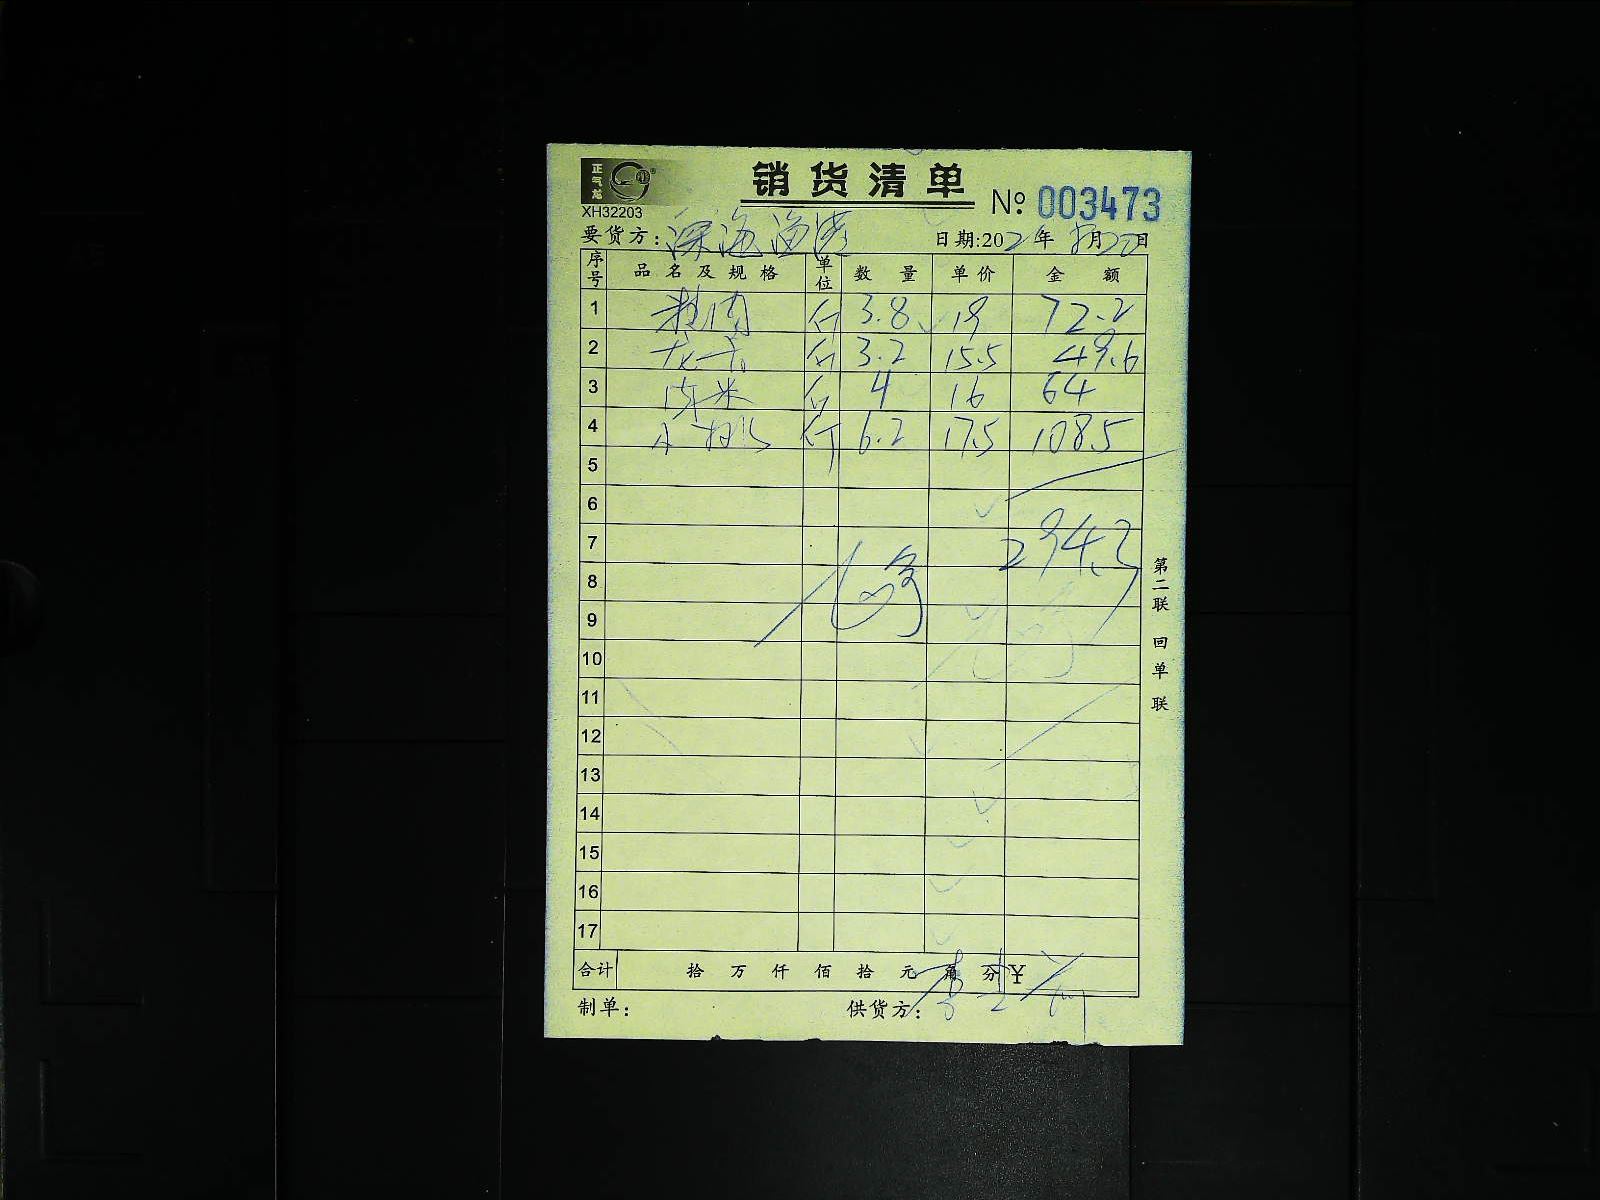 正气龙
XH32203
销货清单
№ 003473
要货方:深海渔港 日期:202 年 8月20日
序号 品名及规格 单位 数量 单价 金额
1 精肉 斤 3.8 19 72.2
2 斤 3.2 15.5 49.6
3 肉米 斤 4 16 64
4 小排 斤 6.2 17.5 108.5
5
6
7 294.3
8
9
10
11
12
13
14
15
16
17
合计 拾 万 仟 佰 拾 元 角 分 ¥
制单: 供货方:
第二联 回单联